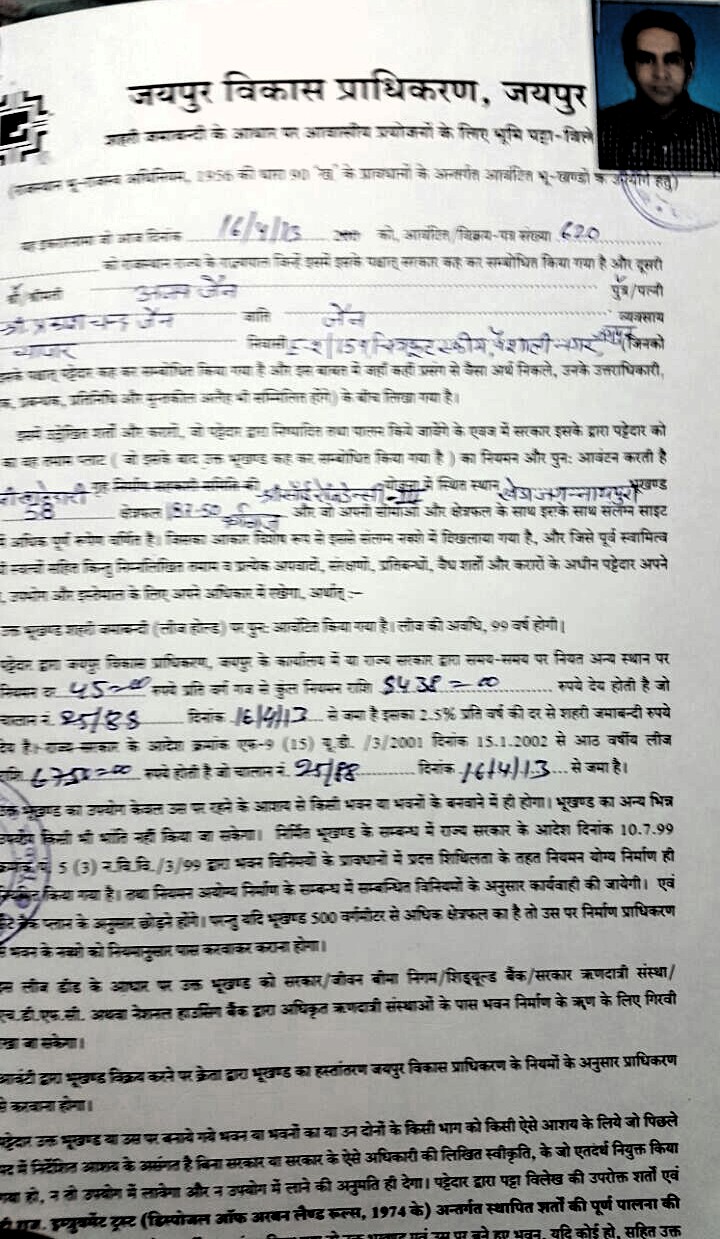 जयपुर विकास प्राधिकरण, जयपुर
शहरी जमाबन्दी के आधार पर आवासीय प्रयोजनों के लिए भूमि पट्टा-विले
(राजस्थान भू-राजस्व अधिनियम, 1956 की धारा 90 "ख" के प्रावधानों के अन्तर्गत आवंटित भू-खण्डों के उपयोग हेतु)
यह इकरारनामा जो आज दिनांक 16/4/13 को, आवंटित/विक्रय-पत्र संख्या 620
को राजस्थान राज्य के राज्यपाल जिन्हें इसमें इसके पश्चात् सरकार कह कर सम्बोधित किया गया है और दूसरी
श्री/श्रीमती जैन पुत्र/पत्नी
श्री चन्द जैन जाति जैन व्यवसाय
व्यापार निवासी चित्रकूट स्कीम, वैशाली नगर, (जिनको
इसके पश्चात् पट्टेदार कह कर सम्बोधित किया गया है और इस बाबत में जहाँ कहीं प्रसंग से वैसा अर्थ निकले, उनके उत्तराधिकारी,
क, प्रबन्धक, प्रतिनिधि और भी सम्मिलित होंगे) के बीच लिखा गया है।
इसमें उल्लेखित शर्तों और करारों, जो पट्टेदार द्वारा निष्पादित तथा पालन किये जावेंगे के एवज में सरकार इसके द्वारा पट्टेदार को
का वह तमाम प्लाट ( जो इसके बाद उक्त भूखण्ड कह कर सम्बोधित किया गया है ) का नियमन और पुनः आवंटन करती है
गृह निर्माण सहकारी समिति की योजना में स्थित स्थान भूखण्ड
58 क्षेत्रफल 187-50 और जो अपनी सीमाओं और क्षेत्रफल के साथ इसके साथ संलग्न साइट
में अधिक पूर्ण रूपेण वर्णित है। जिसका आकार विशेष रूप से इससे संलग्न नक्शे में दिखलाया गया है, और जिसे पूर्व स्वामित्व
स्वत्वों सहित किन्तु निम्नलिखित तमाम व प्रत्येक अपवादों, संरक्षणों, प्रतिबन्धों, वैध शर्तों और करारों के अधीन पट्टेदार अपने
, उपभोग और इस्तेमाल के लिए अपने अधिकार में रखेगा, अर्थात् :–
उक्त भूखण्ड शहरी जमाबन्दी (लीज होल्ड) पर पुनः आवंटित किया गया है। लीज की अवधि, 99 वर्ष होगी।
पट्टेदार द्वारा जयपुर विकास प्राधिकरण, जयपुर के कार्यालय में या राज्य सरकार द्वारा समय-समय पर नियत अन्य स्थान पर
नियमन दर 45=00 रुपये प्रति वर्ग गज से कुल नियमन राशि 8438=00 रुपये देय होती है जो
चालान नं. 25/88 दिनांक 16/4/13 से जमा है इसका 2.5% प्रति वर्ष की दर से शहरी जमाबन्दी रुपये
देय है। राज्य सरकार के आदेश क्रमांक एफ-9 (15) यू.डी. /3/2001 दिनांक 15.1.2002 से आठ वर्षीय लीज
राशि रुपये होती है जो चालान नं. 25/88 दिनांक 16/4/13 से जमा है।
उक्त भूखण्ड का उपयोग केवल उस पर रहने के आशय से किसी भवन या भवनों के बनवाने में ही होगा। भूखण्ड का अन्य भिन्न
उपयोग किसी भी भांति नहीं किया जा सकेगा। निर्मित भूखण्ड के सम्बन्ध में राज्य सरकार के आदेश दिनांक 10.7.99
क्रमांक 5 (3) न.वि.वि./3/99 द्वारा भवन विनियमों के प्रावधानों में प्रदत्त शिथिलता के तहत नियमन योग्य निर्माण ही
किया गया है। तथा नियमन अयोग्य निर्माण के सम्बन्ध में सम्बन्धित विनियमों के अनुसार कार्यवाही की जायेगी। एवं
बैक प्लान के अनुसार छोड़ने होंगे। परन्तु यदि भूखण्ड 500 वर्गमीटर से अधिक क्षेत्रफल का है तो उस पर निर्माण प्राधिकरण
से भवन के नक्शे को नियमानुसार पास करवाकर कराना होगा।
इस लीज डीड के आधार पर उक्त भूखण्ड को सरकार/जीवन बीमा निगम/शिड्यूल्ड बैंक/सरकार ऋणदात्री संस्था/
एच.डी.एफ.सी. अथवा नेशनल हाउसिंग बैंक द्वारा अधिकृत ऋणदात्री संस्थाओं के पास भवन निर्माण के ऋण के लिए गिरवी
रखा जा सकेगा।
आवंटी द्वारा भूखण्ड विक्रय करने पर क्रेता द्वारा भूखण्ड का हस्तांतरण जयपुर विकास प्राधिकरण के नियमों के अनुसार प्राधिकरण
से करवाना होगा।
पट्टेदार उक्त भूखण्ड या उस पर बनाये गये भवन या भवनों का या उन दोनों के किसी भाग को किसी ऐसे आशय के लिये जो पिछले
पट में निर्देशित आशय के असंगत है बिना सरकार या सरकार के ऐसे अधिकारी की लिखित स्वीकृति, के जो एतदर्थ नियुक्त किया
गया हो, न तो उपयोग में लावेगा और न उपयोग में लाने की अनुमति ही देगा। पट्टेदार द्वारा पट्टा विलेख की उपरोक्त शर्तों एवं
राज. इम्प्रूवमेंट ट्रस्ट (डिस्पोजल ऑफ अरबन लैण्ड रूल्स, 1974 के) अन्तर्गत स्थापित शर्तों की पूर्ण पालना की
उक्त भूखण्ड एवं उस पर बने हुए भवन, यदि कोई हो, सहित उक्त